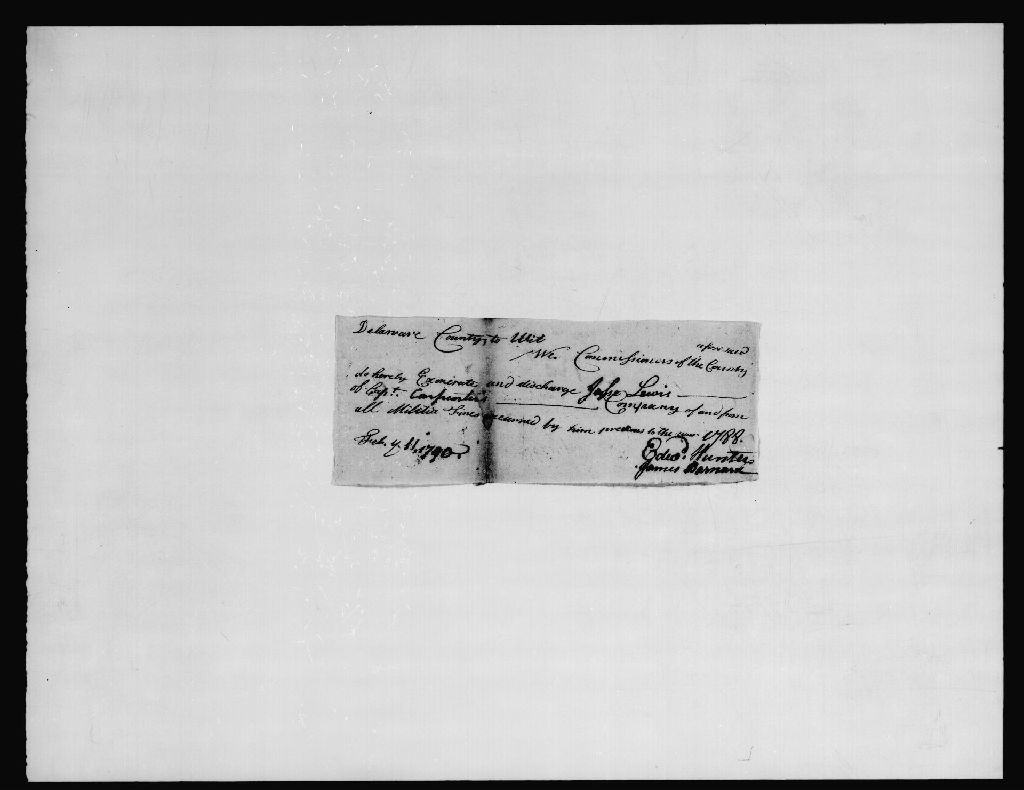 Delaware County to Wit
We Commissioners of the County aforesaid
do hereby Exonerate and discharge Jesse Lewis
of Capt. Carpenter's Company of and from
all Militia Fines incurred by him previous to the year 1788.
Feb. y. 11, 1790
Edwd. Hunter
James Barnard